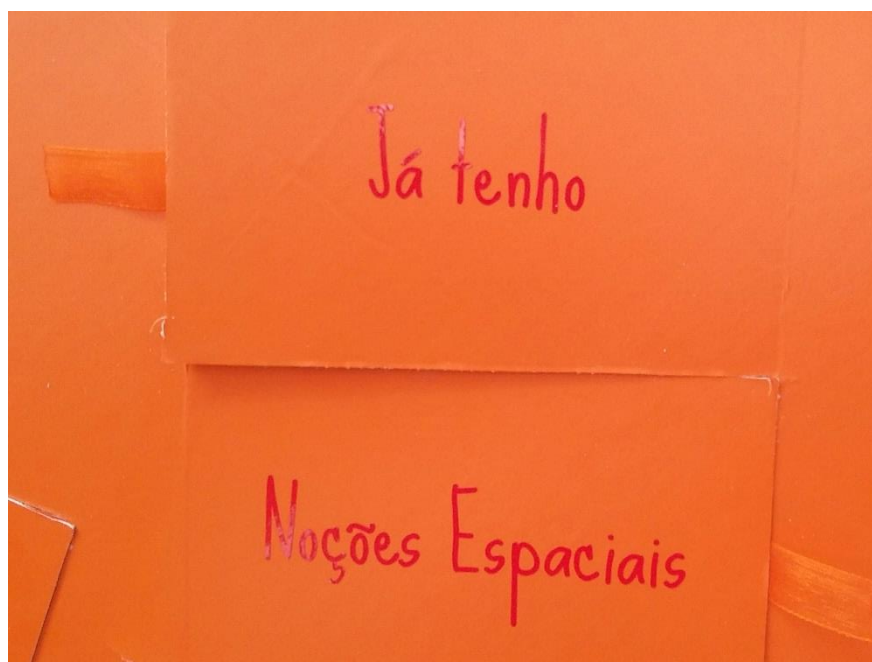 Já tenho
Noções Espaciais